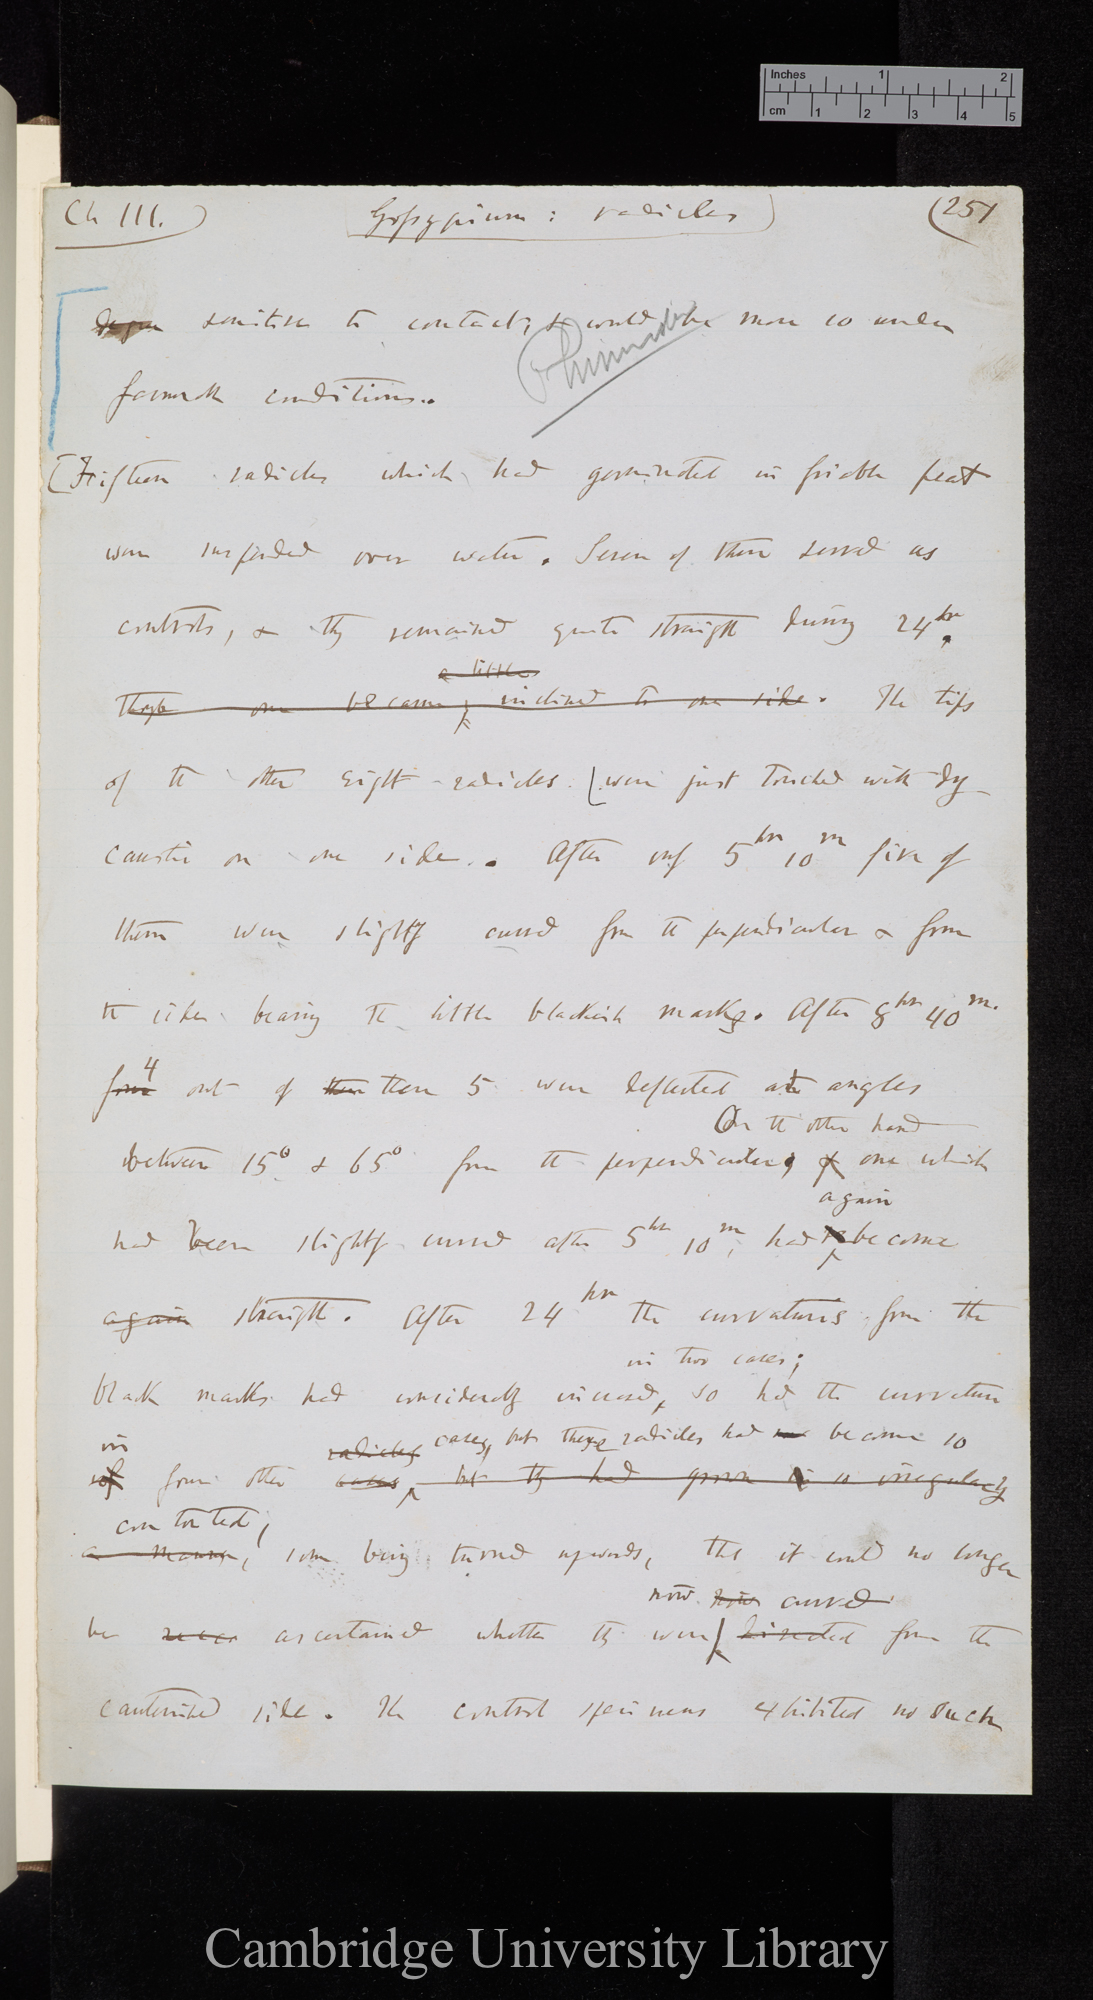 Inches 1 2
cm 1 2 3 4 5
Ch III.)
Gossypium: radicles
(251
degree sensitive to contact, & would be more so under
favourable conditions.
[Fifteen radicles which had germinated in friable peat
were suspended over water. Seven of them served as
controls, & they remained quite straight during 24 hr.
a little
though one became inclined to one side. The tips
of the other eight radicles were just touched with dry
caustic on one side. After only 5 hr 10 m five of
them were slightly curved from the perpendicular & from
the sides bearing the little blackish marks. After 8 hr 40 m.
4
four out of these 5 were deflected at angles
On the other hand
between 15° & 65° from the perpendicular; & one which
again
had been slightly curved after 5 hr 10 m, had become
again straight. After 24 hr the curvatures from the
in two cases;
black marks had considerably increased, so had the curvature
in radicles cases, but these radicles had become so
of four other cases, but they had grown in so irregularly
contorted,
a manner, some being turned upwards, that it could no longer
now curved
be ascertained whether they were directed from the
cauterised side. The control specimens exhibited no such
Cambridge University Library